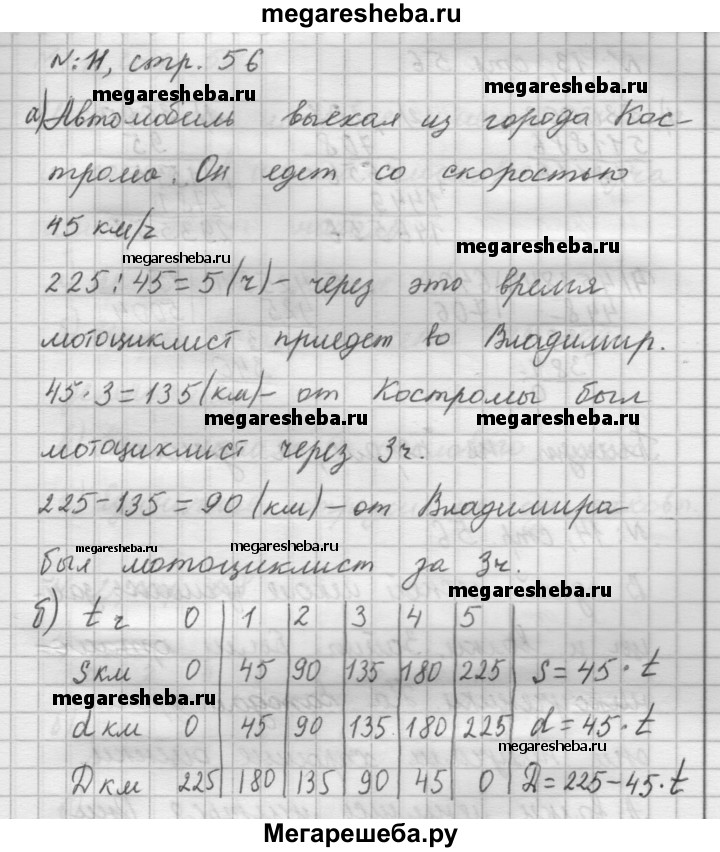 megaresheba.ru
№: 11, стр. 56
megaresheba.ru
megaresheba.ru
а) Автомобиль выехал из города Кос-
трома. Он едет со скоростью
45 км/ч
megaresheba.ru
megaresheba.ru
225 : 45 = 5 (ч) - через это время
мотоциклист приедет во Владимир.
45 · 3 = 135 (км) - от Костромы был
megaresheba.ru
megaresheba.ru
мотоциклист через 3ч.
225 - 135 = 90 (км) - от Владимира
megaresheba.ru
megaresheba.ru
был мотоциклист за 3ч.
megaresheba.ru
б) t ч 0 1 2 3 4 5
S км 0 45 90 135 180 225 S = 45 · t
megaresheba.ru
d км 0 45 90 135 180 225 d = 45 · t
megaresheba.ru
D км 225 180 135 90 45 0 D = 225 - 45 · t
Мегарешеба.ру